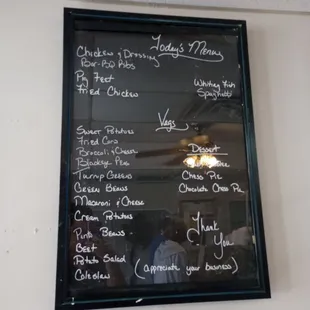 Today's Menu
Chicken & Dressing
Bar-BQ Ribs
Pig Feet
Fried Chicken
Whiting Fish
Spaghetti
Vegs
Sweet Potatoes
Fried Corn
Broccoli & Cheese
Blackeye Peas
Turnip Greens
Green Beans
Macaroni & Cheese
Cream Potatoes
Pinto Beans
Beet
Potato Salad
Coleslaw
Dessert
Chess Pie
Chocolate Chess Pie
Thank
You
(appreciate your business)